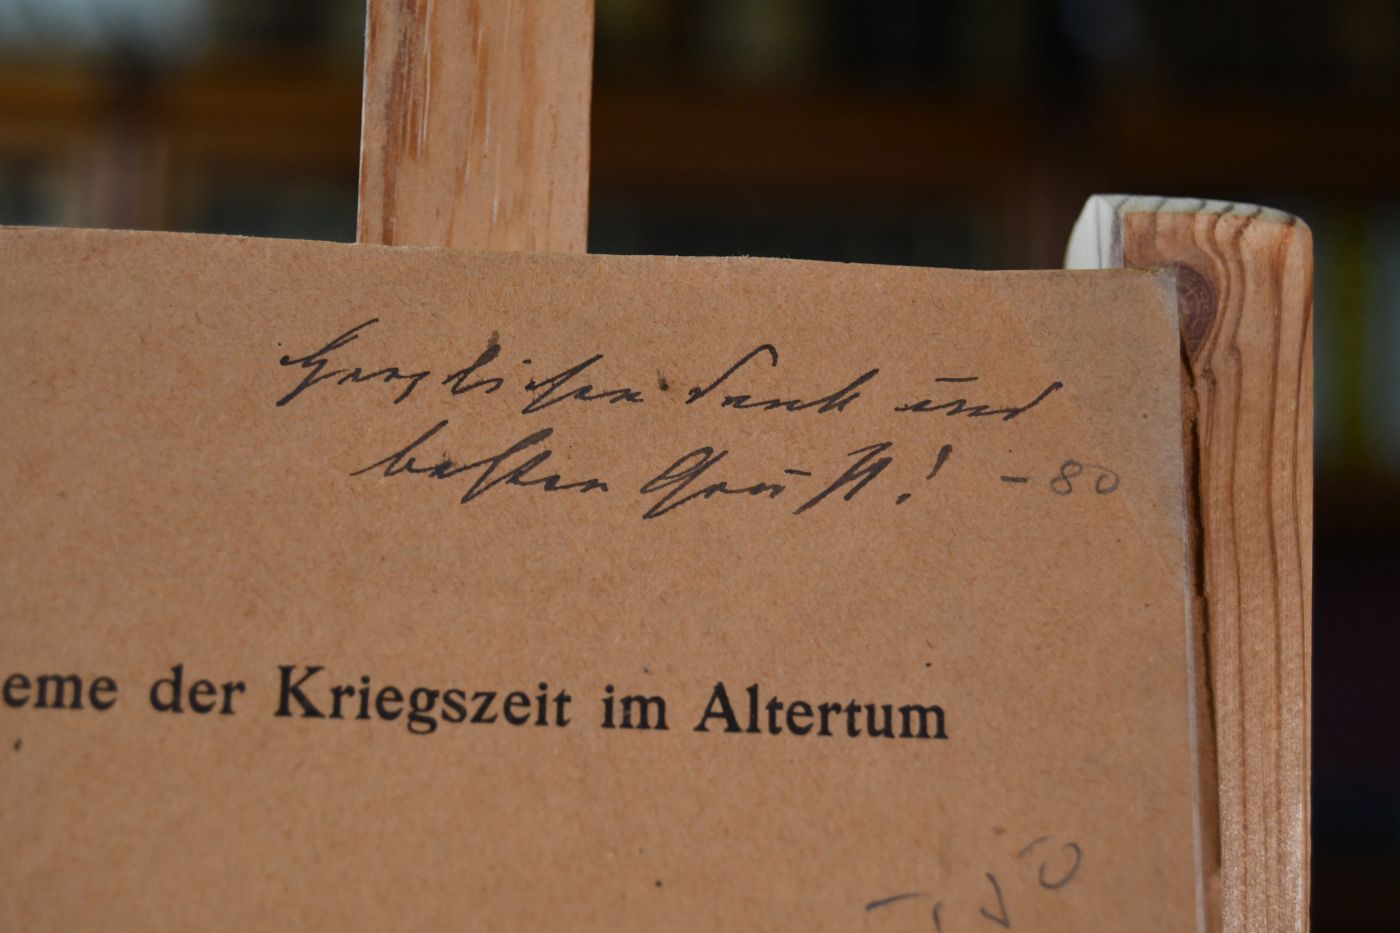 Herzlichen Dank und
besten Gruß! -80
eme der Kriegszeit im Altertum
-,50